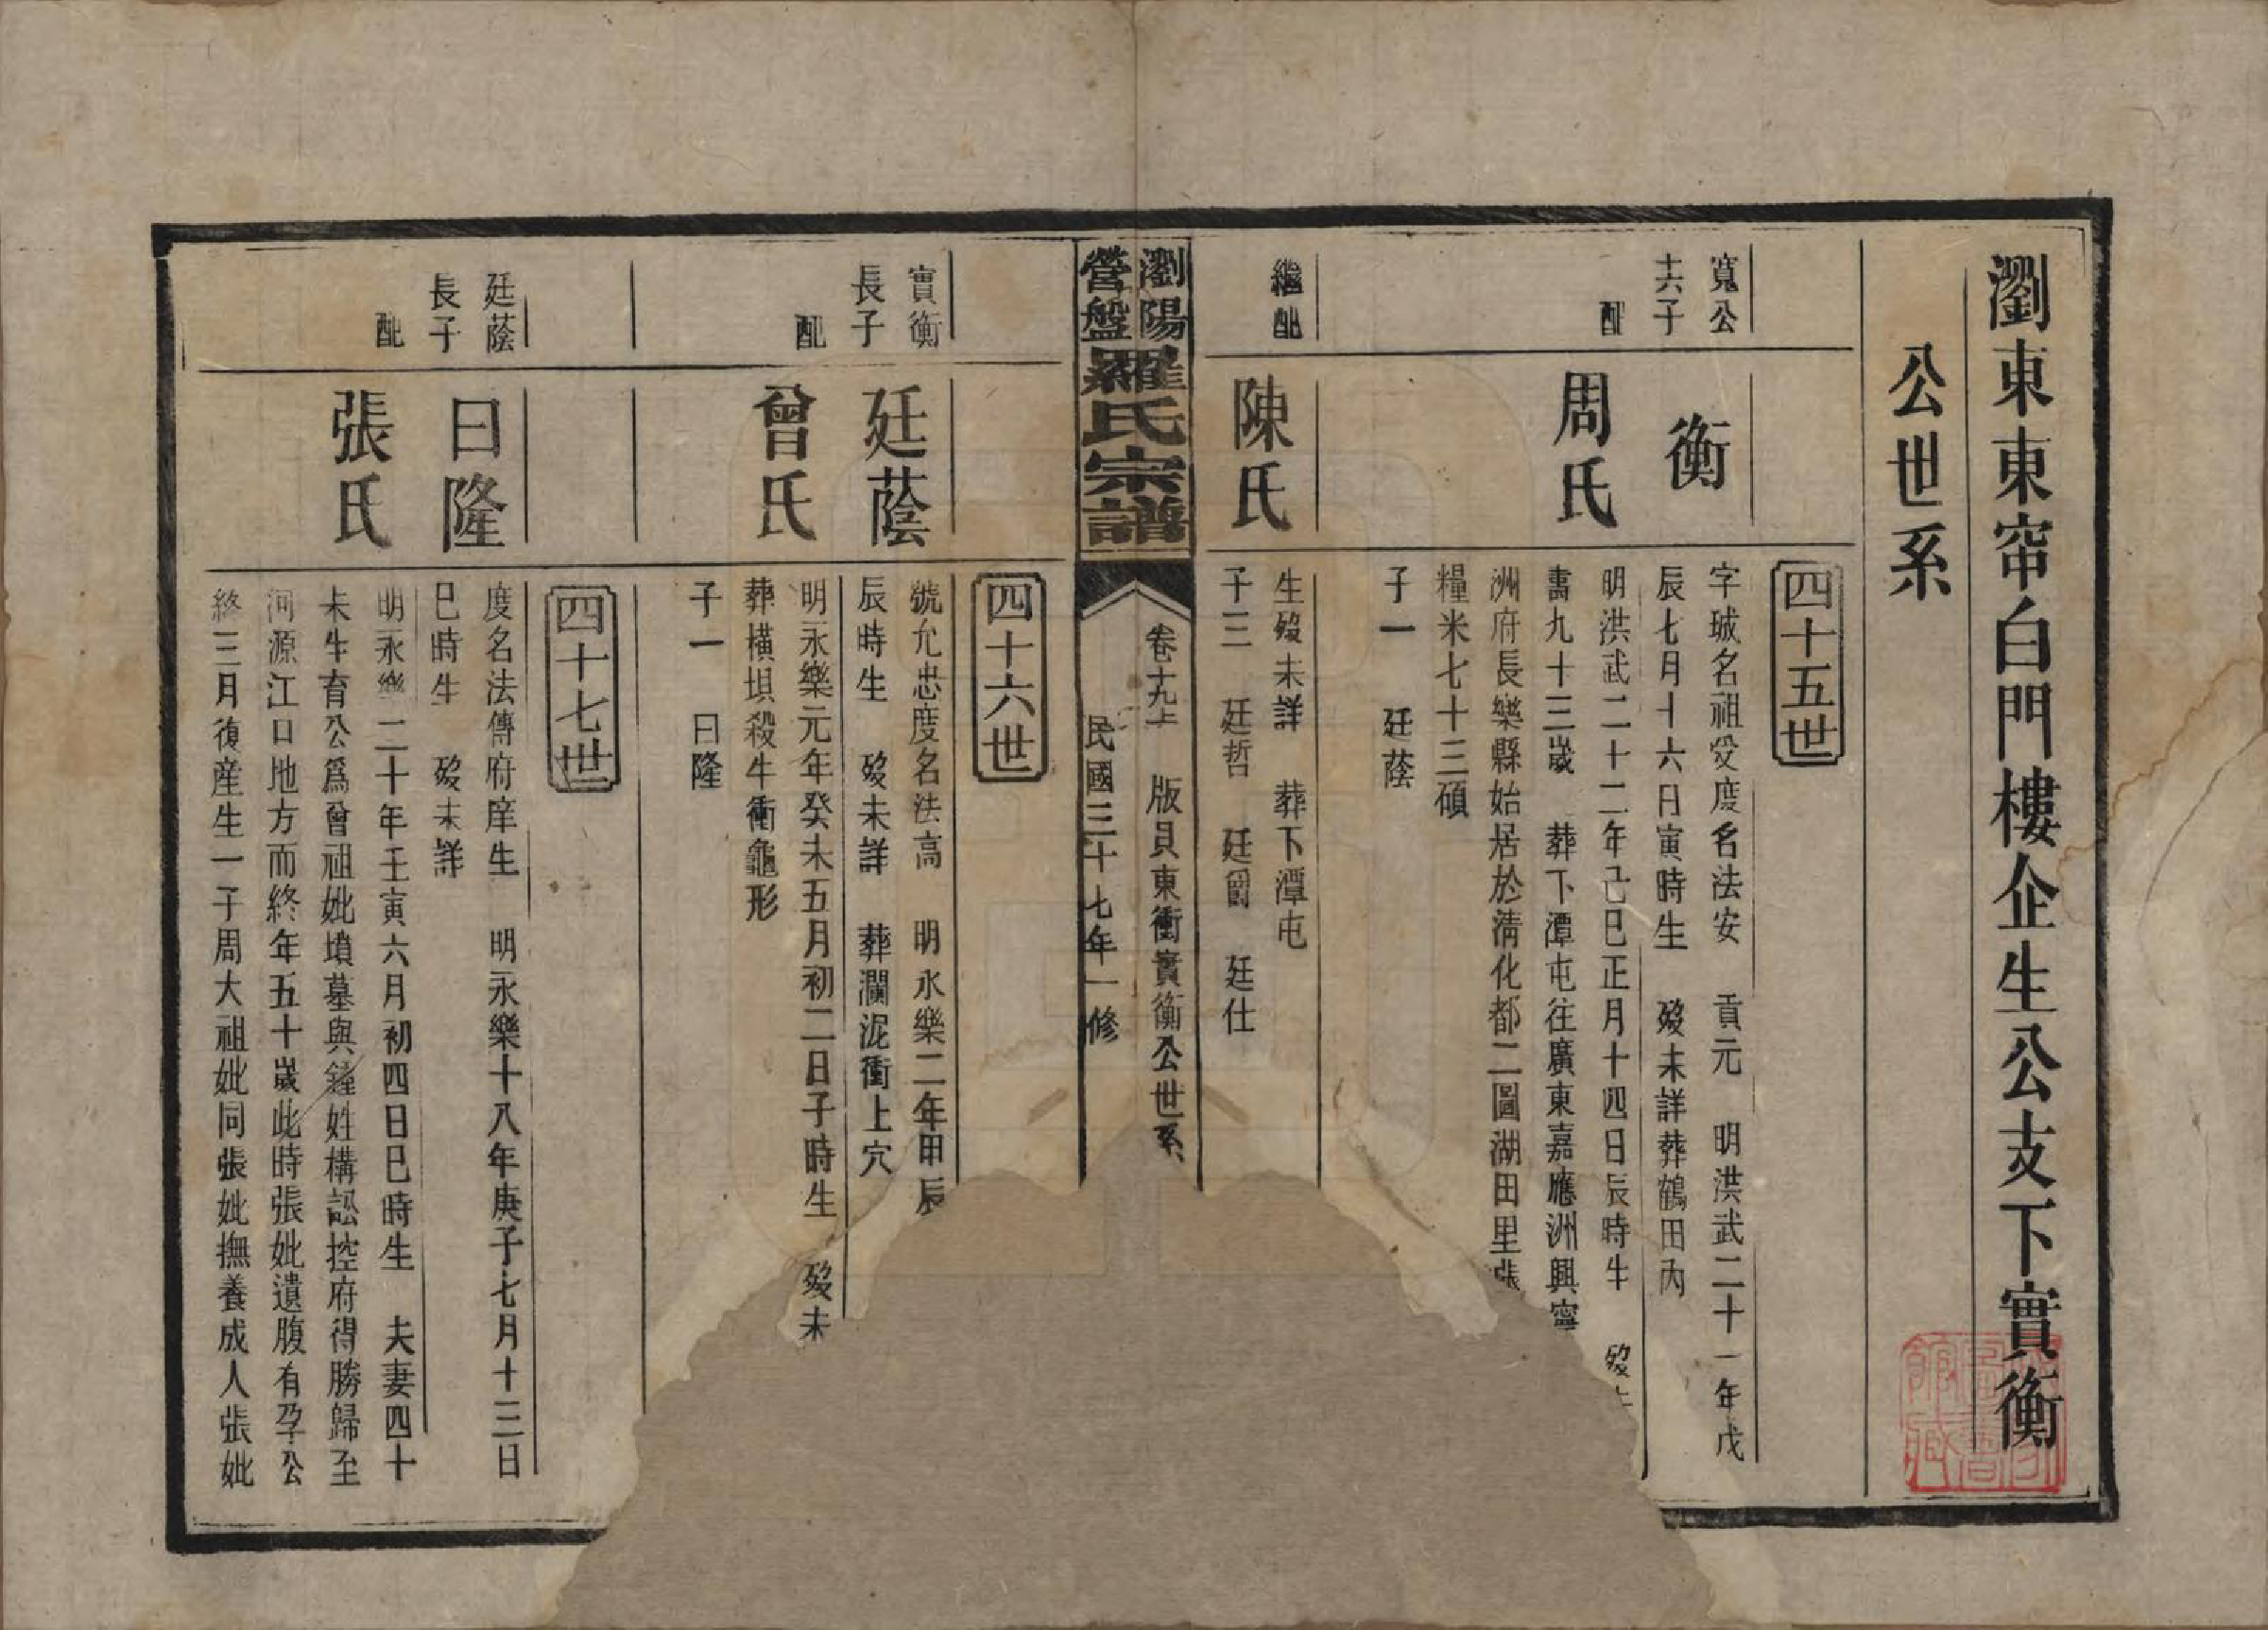 瀏東東帘白門樓企生公支下實衡
公世系
四十五世
寬公
十六子
衡
字城名祖受度名法安　貢元　明洪武二十一年戊
辰七月十六日寅時生　歿未詳葬鶴田內
配
周氏
明洪武二十二年己巳正月十四日辰時生　歿
壽九十三歲　葬下潭屯往廣東嘉應洲興寧
洲府長樂縣始居於清化都二圖湖田里張
糧米七十三碩
子一　廷蔭
繼配
陳氏
生歿未詳　葬下潭屯
子三　廷哲　廷爵　廷仕
瀏陽
營盤
羅氏宗譜
卷十九上　版貝東衝實衡公世系
民國三十七年一修
四十六世
實衡
長子
廷蔭
號允忠度名法高　明永樂二年甲辰
辰時生　歿未詳　葬瀾泥衝上穴
配
曾氏
明永樂元年癸未五月初二日子時生　歿未
葬橫垻殺牛衝龜形
子一　曰隆
四十七世
廷蔭
長子
曰隆
度名法傳府庠生　明永樂十八年庚子七月十三日
巳時生　歿未詳
配
張氏
明永樂二十年壬寅六月初四日巳時生　夫妻四十
未生育公爲曾祖妣墳墓與鍾姓構訟控府得勝歸至
河源江口地方而終年五十歲此時張妣遺腹有孕公
終三月復產生一子周大祖妣同張妣撫養成人張妣